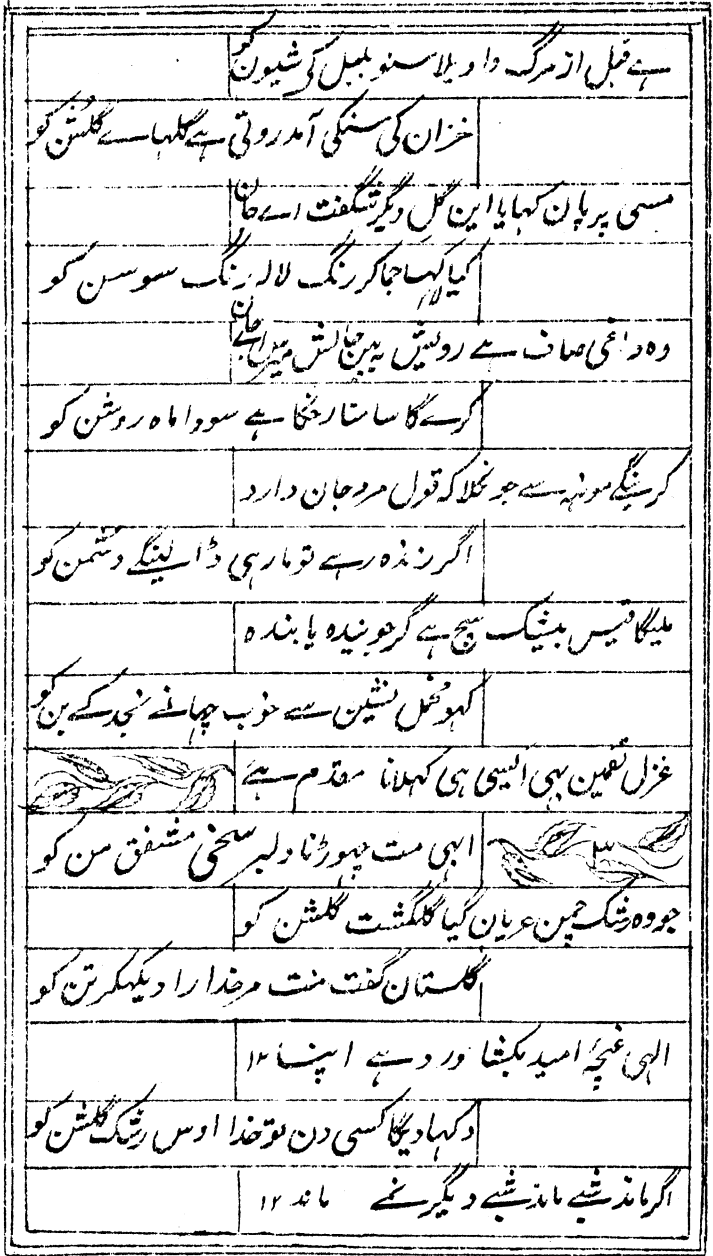 ہے قبل از مرگ واویلا سنو بلبل کی شیون کو
خزان کی سنکی آمد روتی ہے گلہاے گلشن کو
مسی پر پان کہایا این گل دیگر شگفت اے جان
کیا کہا جما کر رنگ لالہ رنگ سوسن کو
وہ داغی صاف ہے روشن
کرے گا سامنا رخکا ہے سودا ماہ روشن کو
کرینگے مونہہ سے جو نکلا کہ قول مرد جان دارد
اگر زندہ رہے تو مار ہی ڈالینگے دشمن کو
ملیگا قیس بیشک سچ ہے گر جویندہ یابندہ
کہو محمل نشین سے خوب چہانے نجد کے بن کو
غزل تضمین بہی ایسی ہی کہلانا مقدم ہے
۳ الہی مت چہوڑنا دلبر سخی مشفق من کو
جو وہ رشک چمن عریان گیا گلگشت گلشن کو
گلستان گفت منت مر خدا را دیکہکر تن کو
الہی غنچۂ امید بکشا ورد ہے اپنا ۱۲
دکہادیگا کسی دن تو خدا اوس رشک گلشن کو
اگر ماند شبے ماند شبے دیگر نمے ماند ۱۲